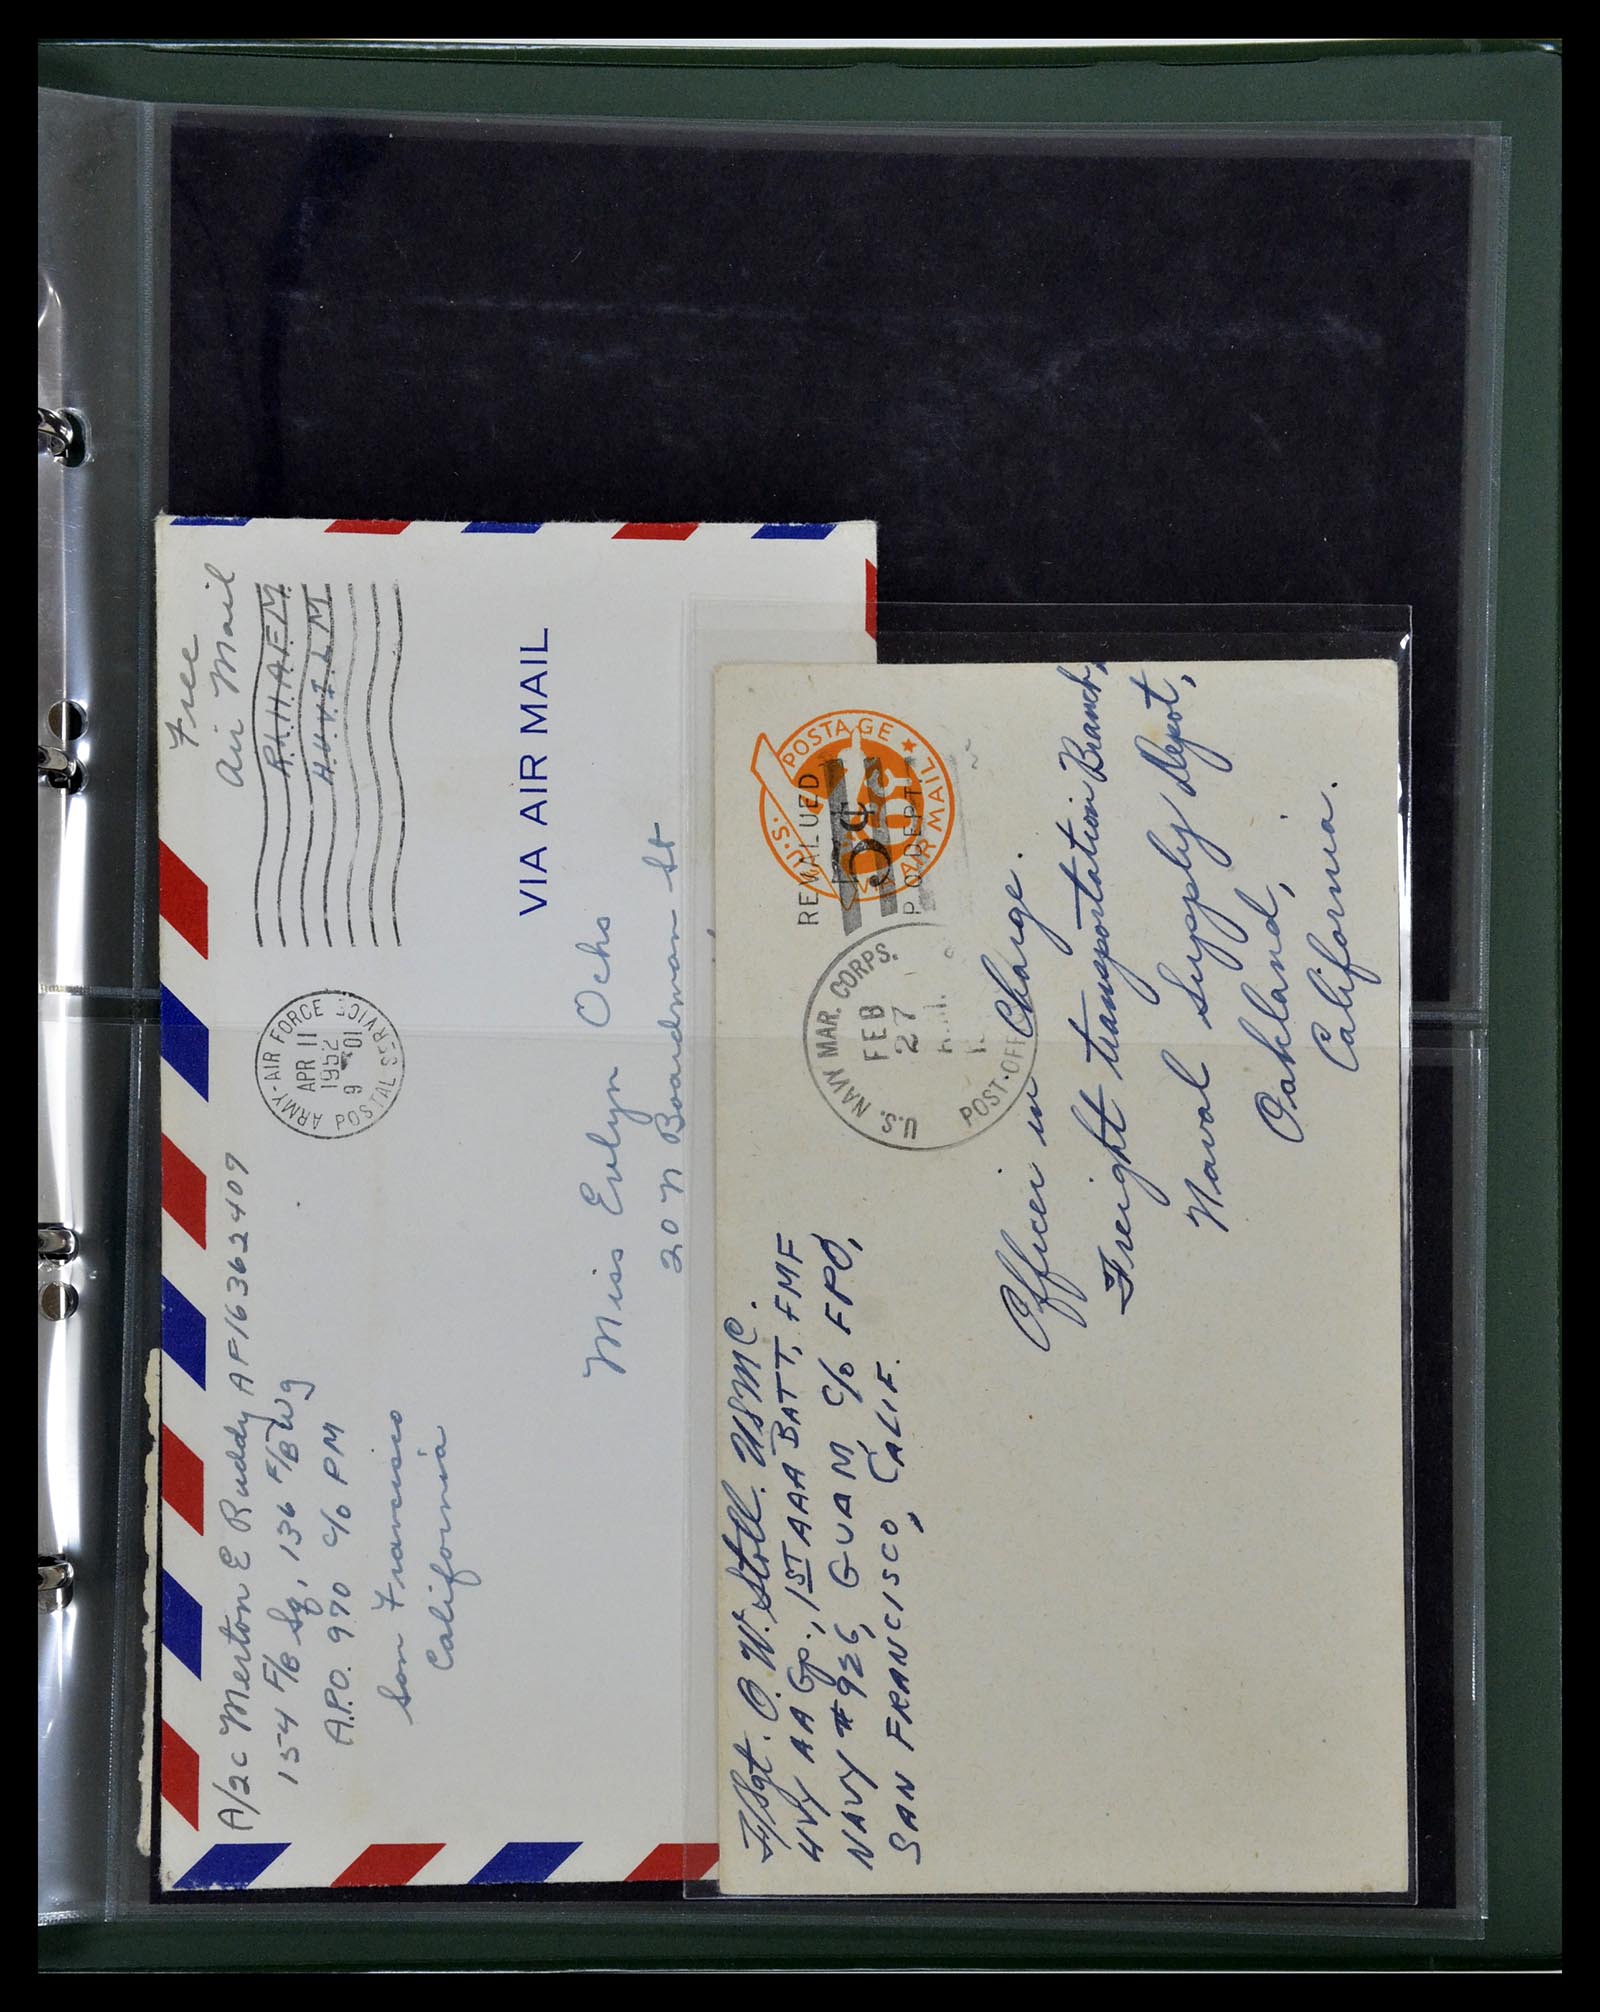 A/2C Merton E Ruddy AF16362409
154 F/B Sq, 136 F/B Wg
A.P.O. 970 c/o PM
San Francisco
California
ARMY-AIR FORCE POSTAL SERVICE
APR 11
1952
9 01
Free
Air Mail
VIA AIR MAIL
Miss Evlyn Ochs
20 N Boardman St
F/Sgt. O. W. Stoll. USMC.
HVY AA Gp., 1ST AAA BATT, FMF
NAVY #926, GUAM, C/o FPO,
SAN FRANCISCO, CALIF.
U.S. NAVY MAR. CORPS.
FEB
27
POST-OFF
REVALUED
5¢
P.O. DEPT.
U.S. POSTAGE
AIR MAIL
Officer in Charge.
Freight transportation Branch,
Naval Supply Depot,
Oakland,
California.